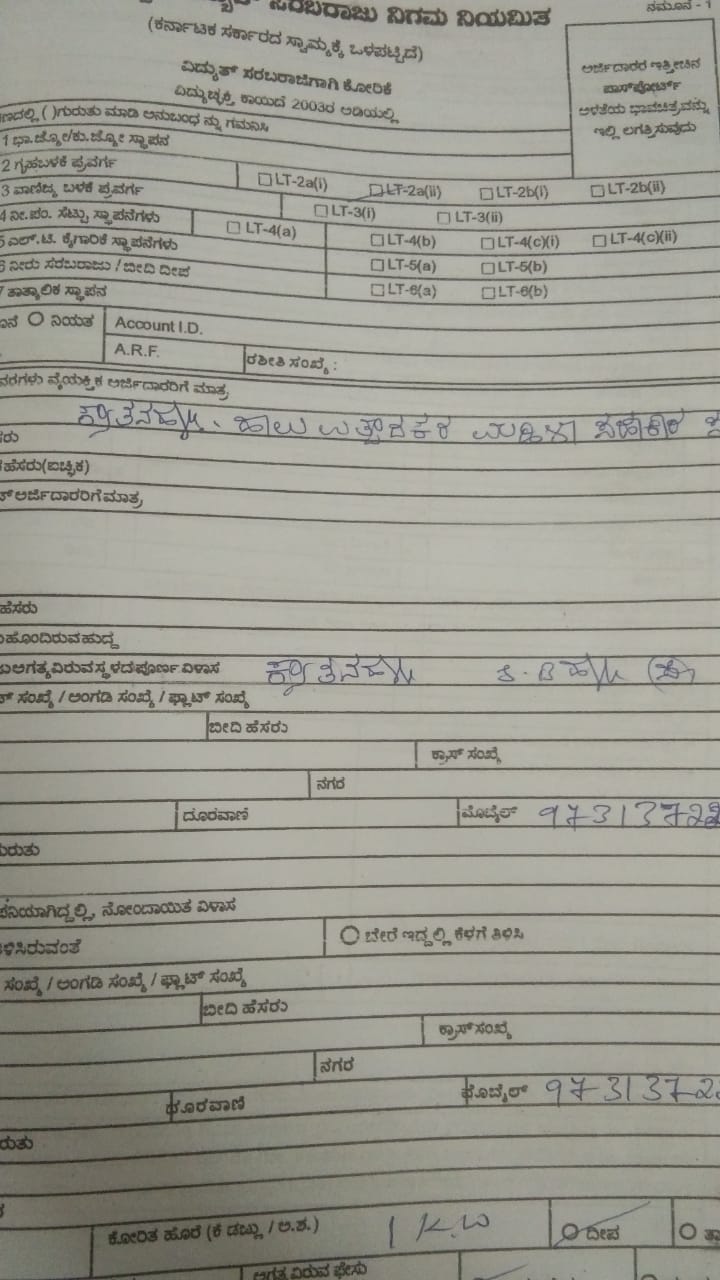 ಸರಬರಾಜು ನಿಗಮ ನಿಯಮಿತ
ನಮೂನೆ - 1
(ಕರ್ನಾಟಕ ಸರ್ಕಾರದ ಸ್ವಾಮ್ಯಕ್ಕೆ ಒಳಪಟ್ಟಿದೆ)
ವಿದ್ಯುತ್ ಸರಬರಾಜಿಗಾಗಿ ಕೋರಿಕೆ
ವಿದ್ಯುಚ್ಛಕ್ತಿ ಕಾಯಿದೆ 2003ರ ಅಡಿಯಲ್ಲಿ
ಅರ್ಜಿದಾರರ ಇತ್ತೀಚಿನ
ಪಾಸ್‌ಪೋರ್ಟ್
ಅಳತೆಯ ಭಾವಚಿತ್ರವನ್ನು
ಇಲ್ಲಿ ಲಗತ್ತಿಸುವುದು
ಣದಲ್ಲಿ ( )ಗುರುತು ಮಾಡಿ ಅನುಬಂಧ ನ್ನು ಗಮನಿಸಿ
1 ಭಾ.ಜ್ಯೋ/ಕು.ಜ್ಯೋ ಸ್ಥಾಪನ
2 ಗೃಹಬಳಕೆ ಪ್ರವರ್ಗ LT-2a(i) LT-2a(ii) LT-2b(i) LT-2b(ii)
3 ವಾಣಿಜ್ಯ ಬಳಕೆ ಪ್ರವರ್ಗ LT-3(i) LT-3(ii)
4 ನೀ.ಪಂ. ಸೆಟ್ಟು ಸ್ಥಾಪನೆಗಳು LT-4(a) LT-4(b) LT-4(c)(i) LT-4(c)(ii)
5 ಎಲ್.ಟಿ. ಕೈಗಾರಿಕೆ ಸ್ಥಾಪನೆಗಳು LT-5(a) LT-5(b)
6 ನೀರು ಸರಬರಾಜು / ಬೀದಿ ದೀಪ LT-6(a) LT-6(b)
7 ತಾತ್ಕಾಲಿಕ ಸ್ಥಾಪನ
ನಿಯತ Account I.D.
A.R.F. ರಶೀತಿ ಸಂಖ್ಯೆ :
ವರಗಳು ವೈಯಕ್ತಿಕ ಅರ್ಜಿದಾರರಿಗೆ ಮಾತ್ರ
ಹಾಲು ಉತ್ಪಾದಕರ ಮಹಿಳಾ ಸಹಕಾರ
ಸರು
ಹೆಸರು(ಐಚ್ಛಿಕ)
ಅರ್ಜಿದಾರರಿಗೆ ಮಾತ್ರ
ಹೆಸರು
ಹೊಂದಿರುವ ಹುದ್ದೆ
ಅಗತ್ಯವಿರುವ ಸ್ಥಳದ ಪೂರ್ಣ ವಿಳಾಸ
ಸಂಖ್ಯೆ / ಅಂಗಡಿ ಸಂಖ್ಯೆ / ಫ್ಲಾಟ್ ಸಂಖ್ಯೆ
ಬೀದಿ ಹೆಸರು
ಕ್ರಾಸ್ ಸಂಖ್ಯೆ
ನಗರ
ದೂರವಾಣಿ ಮೊಬೈಲ್ 97313722
ಗುರುತು
ಪನಿಯಾಗಿದ್ದಲ್ಲಿ, ನೋಂದಾಯಿತ ವಿಳಾಸ
ಳಿಸಿರುವಂತೆ ಬೇರೆ ಇದ್ದಲ್ಲಿ ಕೆಳಗೆ ತಿಳಿಸಿ
ಸಂಖ್ಯೆ / ಅಂಗಡಿ ಸಂಖ್ಯೆ / ಫ್ಲಾಟ್ ಸಂಖ್ಯೆ
ಬೀದಿ ಹೆಸರು
ಕ್ರಾಸ್ ಸಂಖ್ಯೆ
ನಗರ
ದೂರವಾಣಿ ಮೊಬೈಲ್ 9731372
ರುತು
ಕೋರಿತ ಹೊರೆ (ಕೆ ಡಬ್ಲ್ಯು / ಅ.ಶ.) 1 K.W ದೀಪ
ಅಗತ್ಯ ವಿರುವ ಫೇಸು